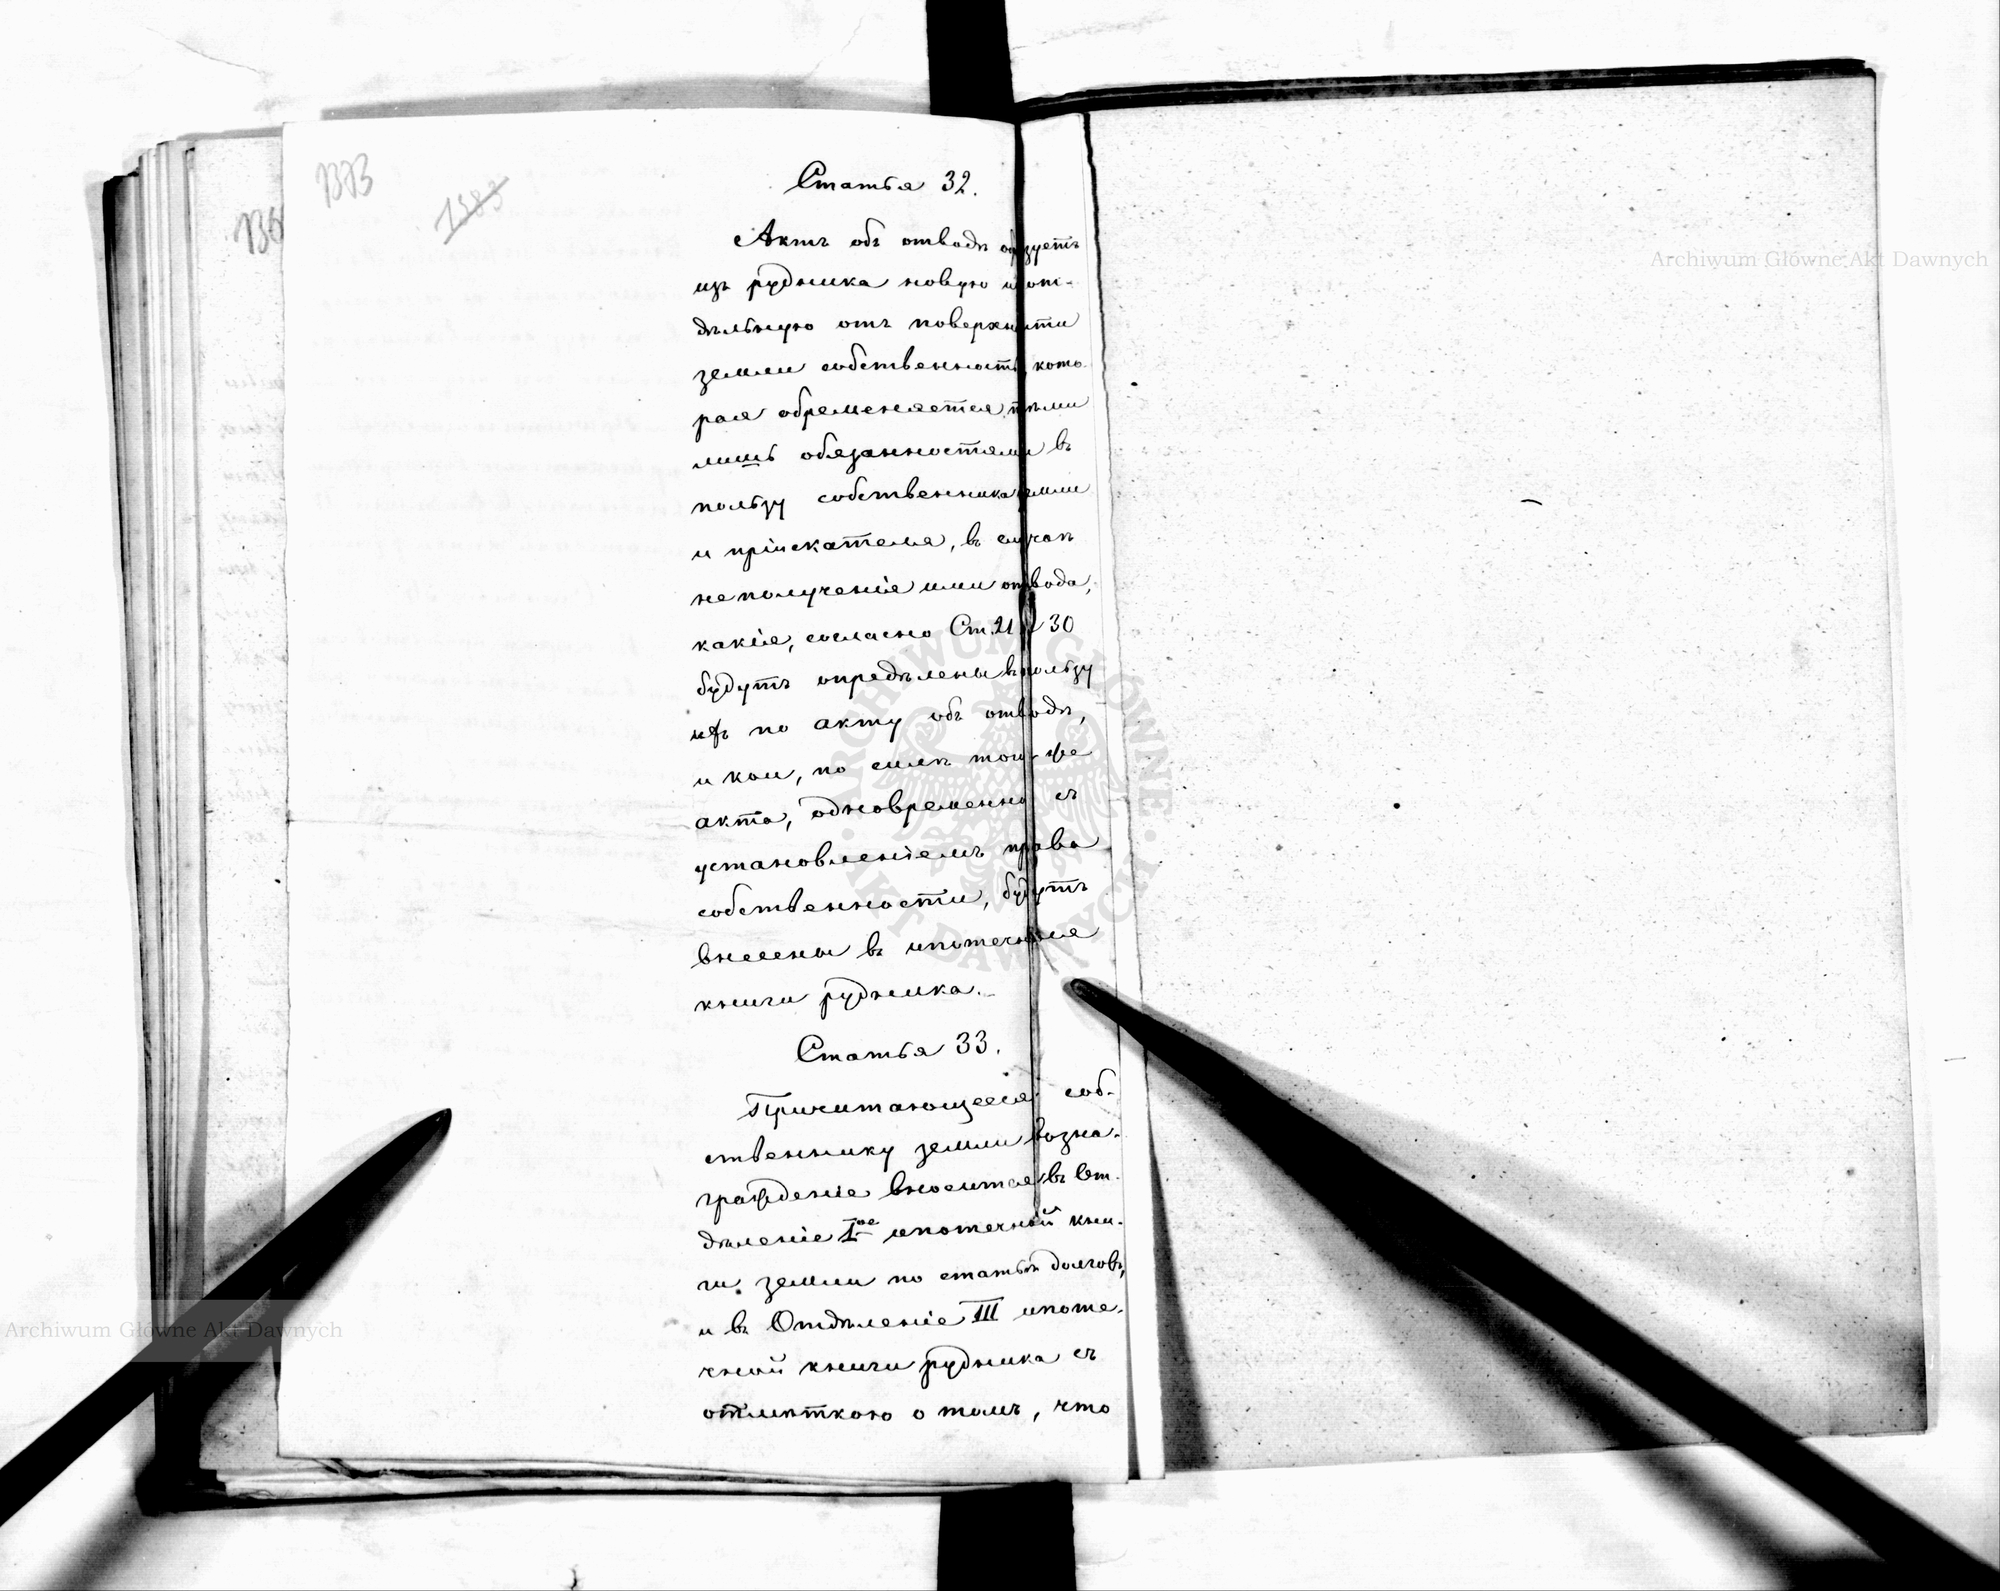 1373
1383
Статья 32.
Актъ объ отводѣ образуетъ
изъ рудника новую и от-
дѣльную отъ поверхности
земли собственность, кото-
рая обременяется тѣми
лишь обязанностями въ
пользу собственника земли
и пріискателя, въ случаѣ
неполученія ими отвода,
какія, согласно Ст. 21 и 30
будутъ опредѣлены въ пользу
ихъ по акту объ отводѣ,
и кои, по силѣ того же
акта, одновременно съ
установленіемъ права
собственности, будутъ
внесены въ ипотечныя
книги рудника.
Статья 33.
Причитающееся соб-
ственнику земли возна-
гражденіе вносится въ От-
дѣленіе I-ое ипотечной кни-
ги земли по статьѣ долговъ,
и въ Отдѣленіе III ипоте-
чной книги рудника съ
отмѣткою о томъ, что
Archiwum Główne Akt Dawnych
Archiwum Główne Akt Dawnych
ARCHIWUM GŁÓWNE AKT DAWNYCH